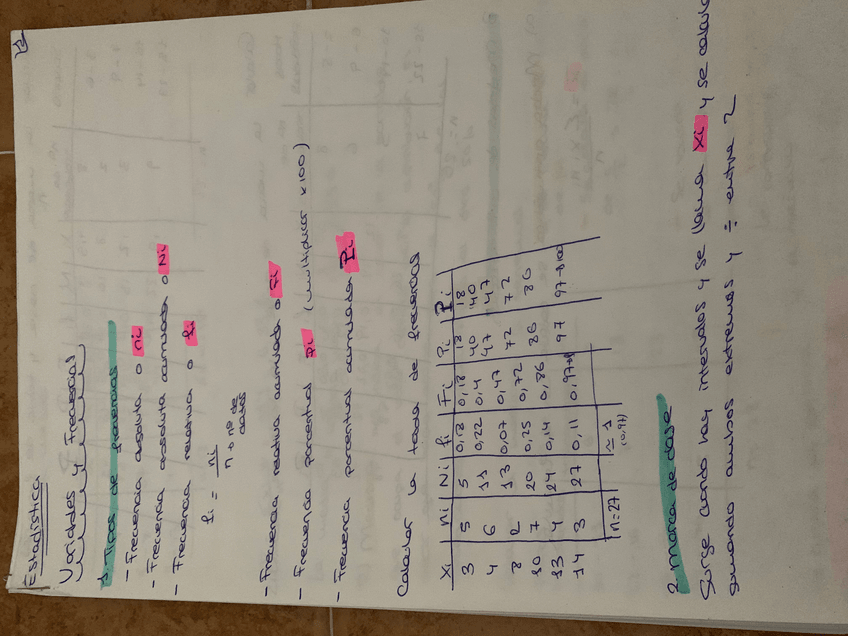 Estadística
Variables y Frecuencias
1. Tipos de frecuencias
- Frecuencia absoluta o ni
- Frecuencia absoluta acumulada o Ni
- Frecuencia relativa o fi
fi = ni
n → nº de
datos
- Frecuencia relativa acumulada o Fi
- Frecuencia porcentual pi (multiplicar x100)
- Frecuencia porcentual acumulada Pi
Calcular la tabla de frecuencias
Xi | ni | Ni | fi | Fi | Pi | Pi
3 | 5 | 5 | 0,18 | 0,18 | 18 | 18
4 | 6 | 11 | 0,22 | 0,4 | 40 | 40
8 | 2 | 13 | 0,07 | 0,47 | 47 | 47
10 | 7 | 20 | 0,25 | 0,72 | 72 | 72
13 | 4 | 24 | 0,14 | 0,86 | 86 | 86
14 | 3 | 27 | 0,11 | 0,97→1 | 97 | 97→100
n=27 ≃ 1
(0,97)
2. Marca de clase
Surge cuando hay intervalos y se llama Xi y se calcula
sumando ambos extremos y ÷ entre 2